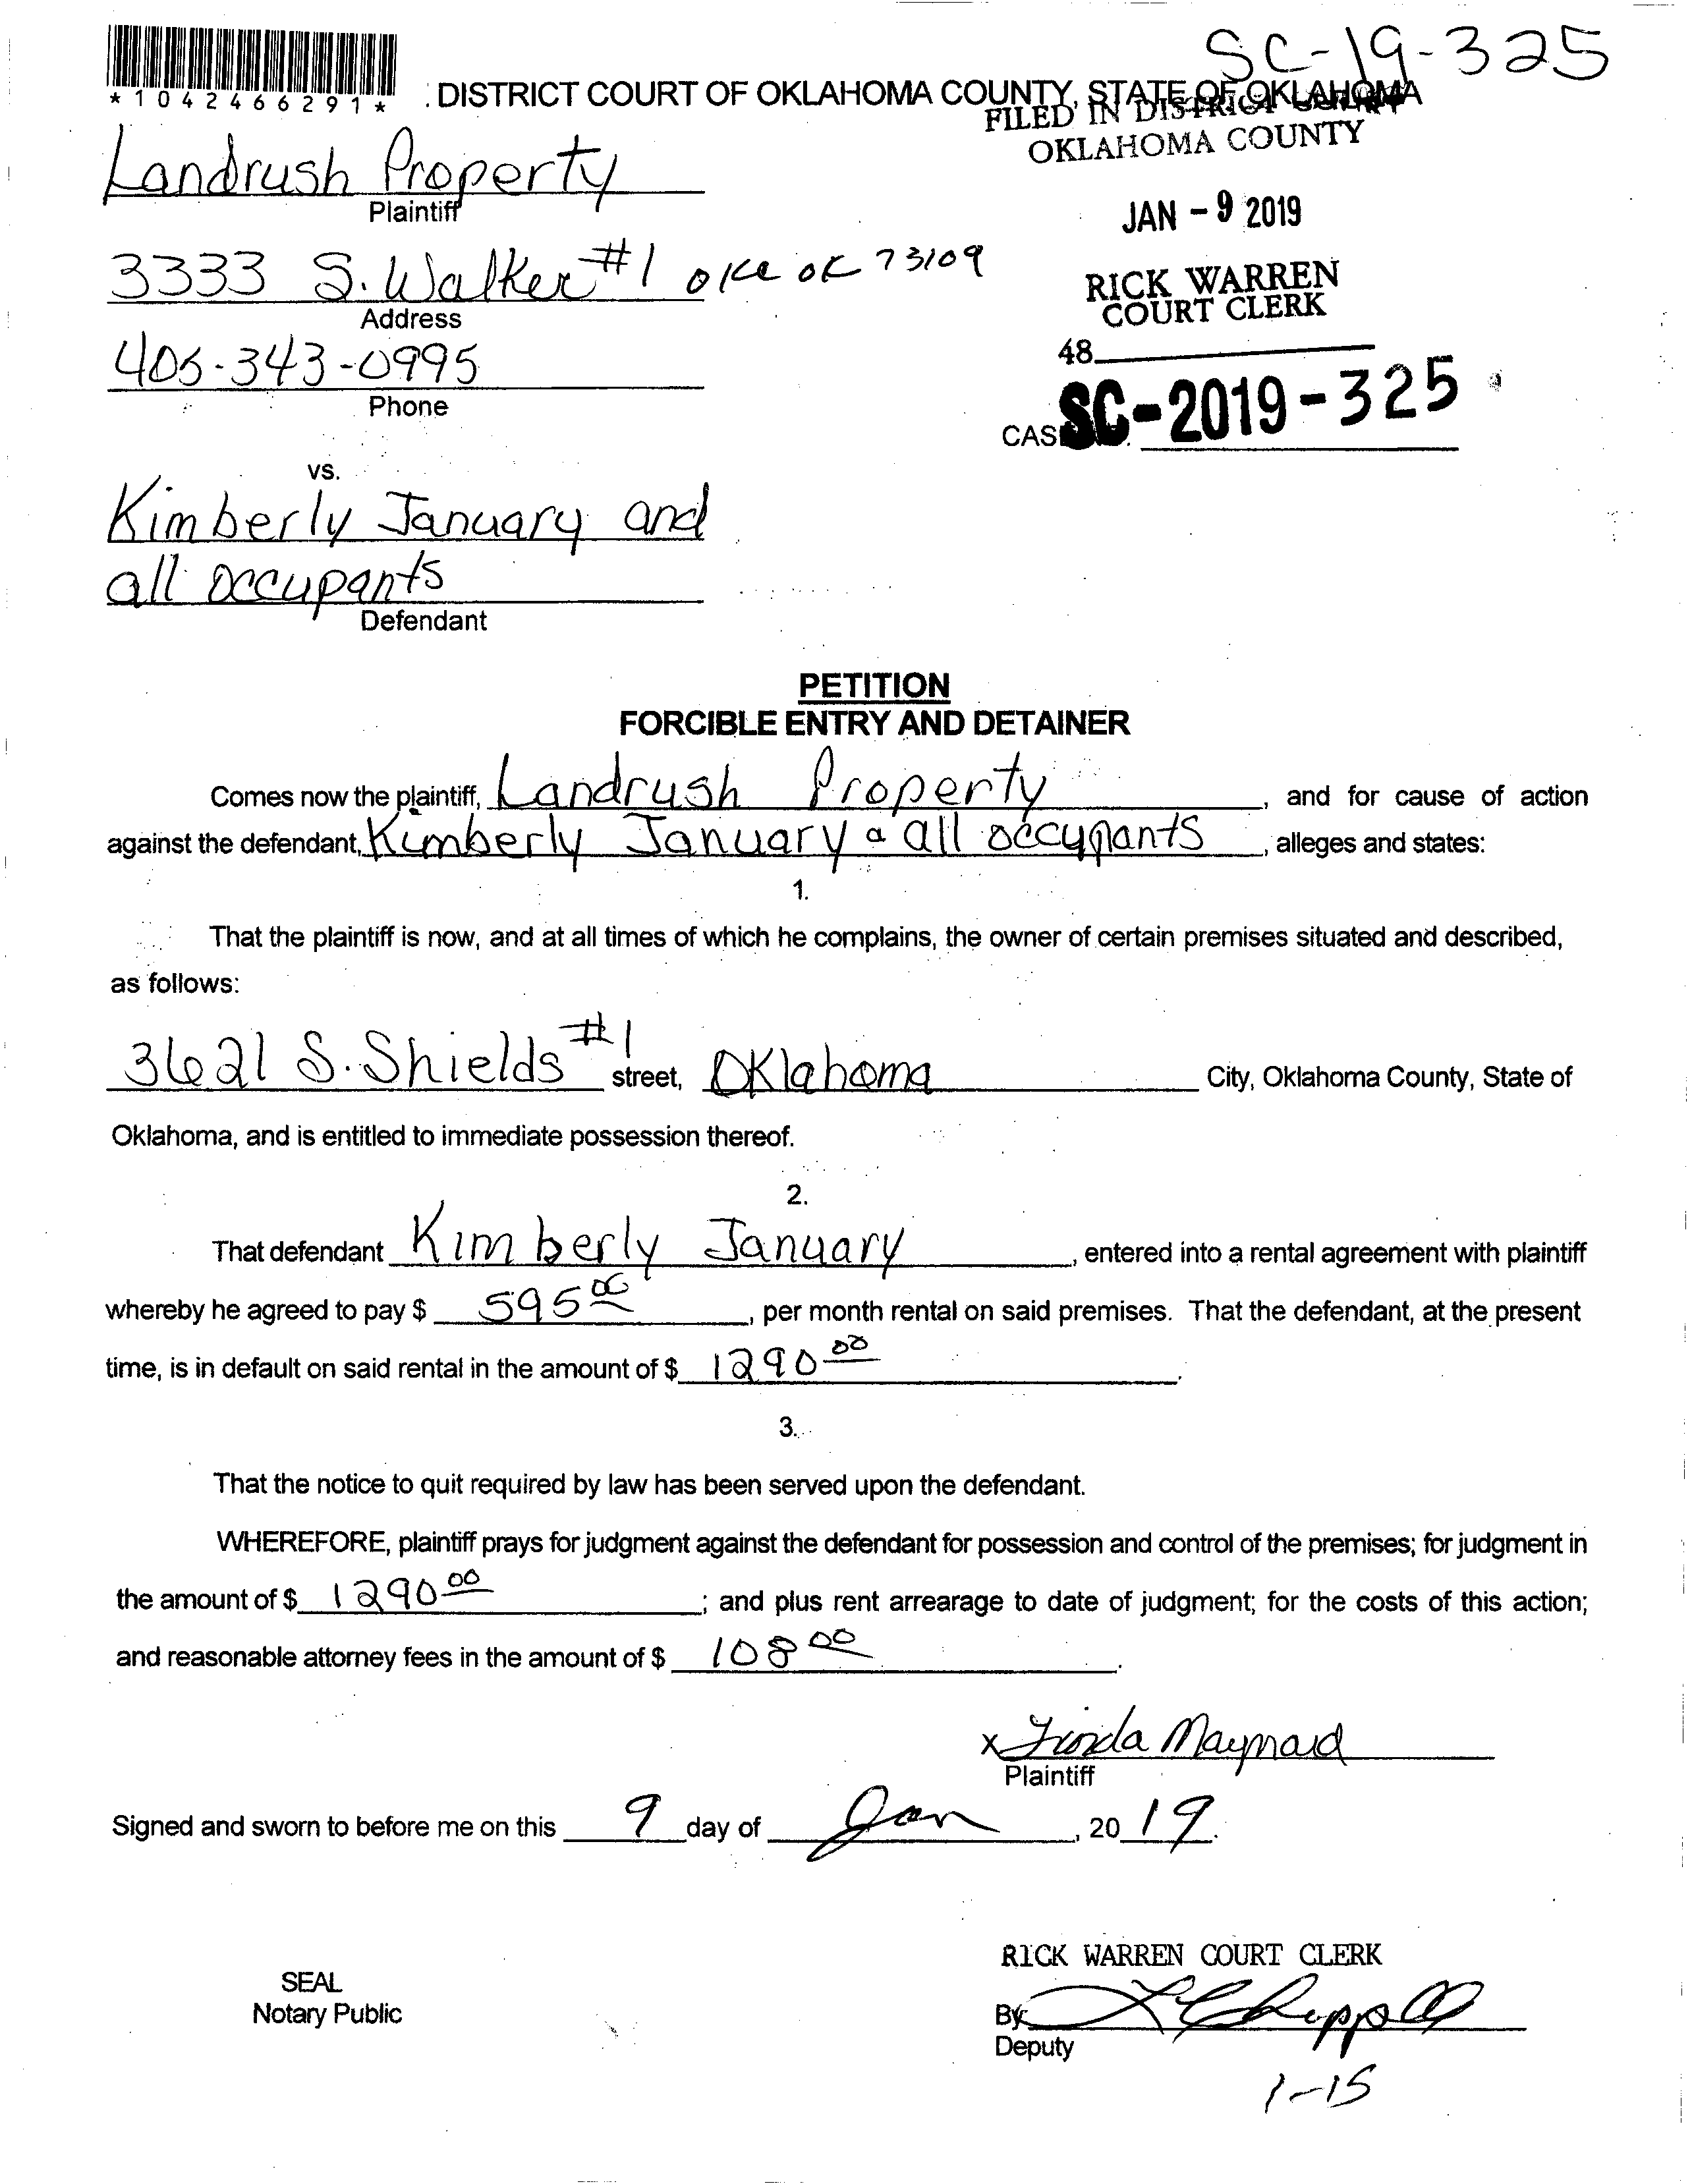 SC-19-325
*1042466291*
. DISTRICT COURT OF OKLAHOMA COUNTY, STATE OF OKLAHOMA
FILED IN DISTRICT COURT
OKLAHOMA COUNTY
Landrush Property
Plaintiff
JAN - 9 2019
3333 S. Walker #1 OKC OK 73109
Address
RICK WARREN
COURT CLERK
405-343-0995
Phone
48
CAS SC-2019-325
vs.
Kimberly January and
all occupants
Defendant
PETITION
FORCIBLE ENTRY AND DETAINER
Comes now the plaintiff, Landrush Property, and for cause of action
against the defendant, Kimberly January & all occupants, alleges and states:
1.
That the plaintiff is now, and at all times of which he complains, the owner of certain premises situated and described,
as follows:
3621 S. Shields #1 street, Oklahoma City, Oklahoma County, State of
Oklahoma, and is entitled to immediate possession thereof.
2.
That defendant Kimberly January, entered into a rental agreement with plaintiff
whereby he agreed to pay $ 595 00, per month rental on said premises. That the defendant, at the present
time, is in default on said rental in the amount of $ 1290 00.
3.
That the notice to quit required by law has been served upon the defendant.
WHEREFORE, plaintiff prays for judgment against the defendant for possession and control of the premises; for judgment in
the amount of $ 1290 00; and plus rent arrearage to date of judgment; for the costs of this action;
and reasonable attorney fees in the amount of $ 108 00.
x Linda Maynard
Plaintiff
Signed and sworn to before me on this 9 day of Jan, 20 19.
RICK WARREN COURT CLERK
SEAL
Notary Public
By
Deputy
1-15